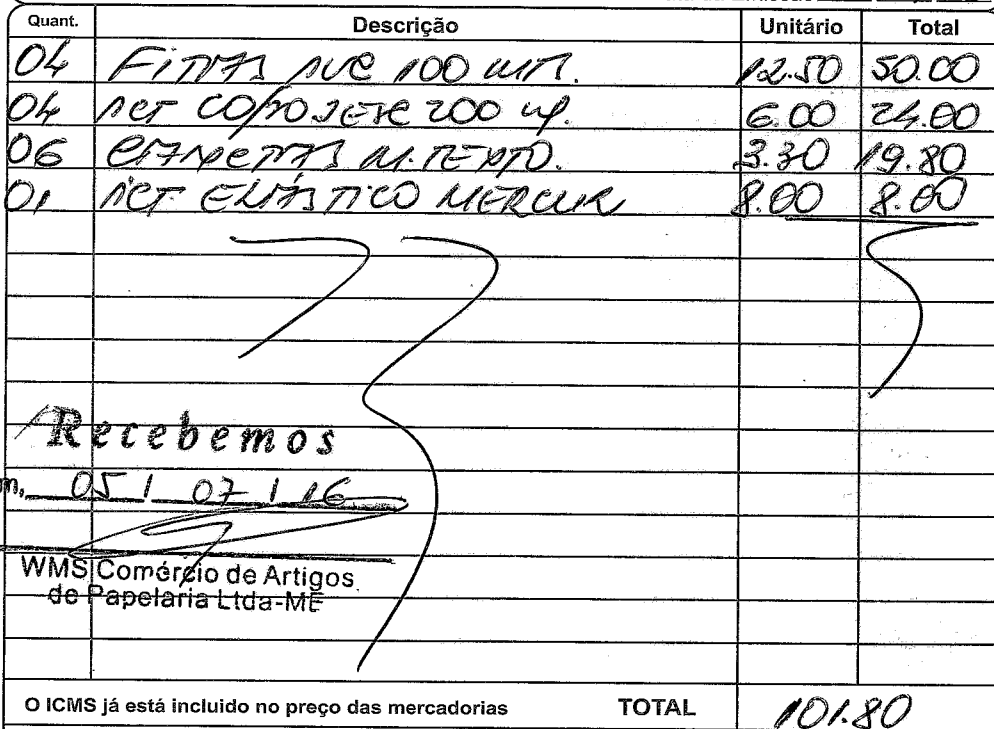 Quant. Descrição Unitário Total
04 FITAS PVC 100 MT. 12.50 50.00
04 PCT COPO 200 6.00 24.00
06 CANETAS M. TEXTO. 3.30 19.80
01 PCT ELÁSTICO MERCUR 8.00 8.00
Recebemos
05 / 07 / 16
WMS Comércio de Artigos
de Papelaria Ltda-ME
O ICMS já está incluido no preço das mercadorias TOTAL 101.80